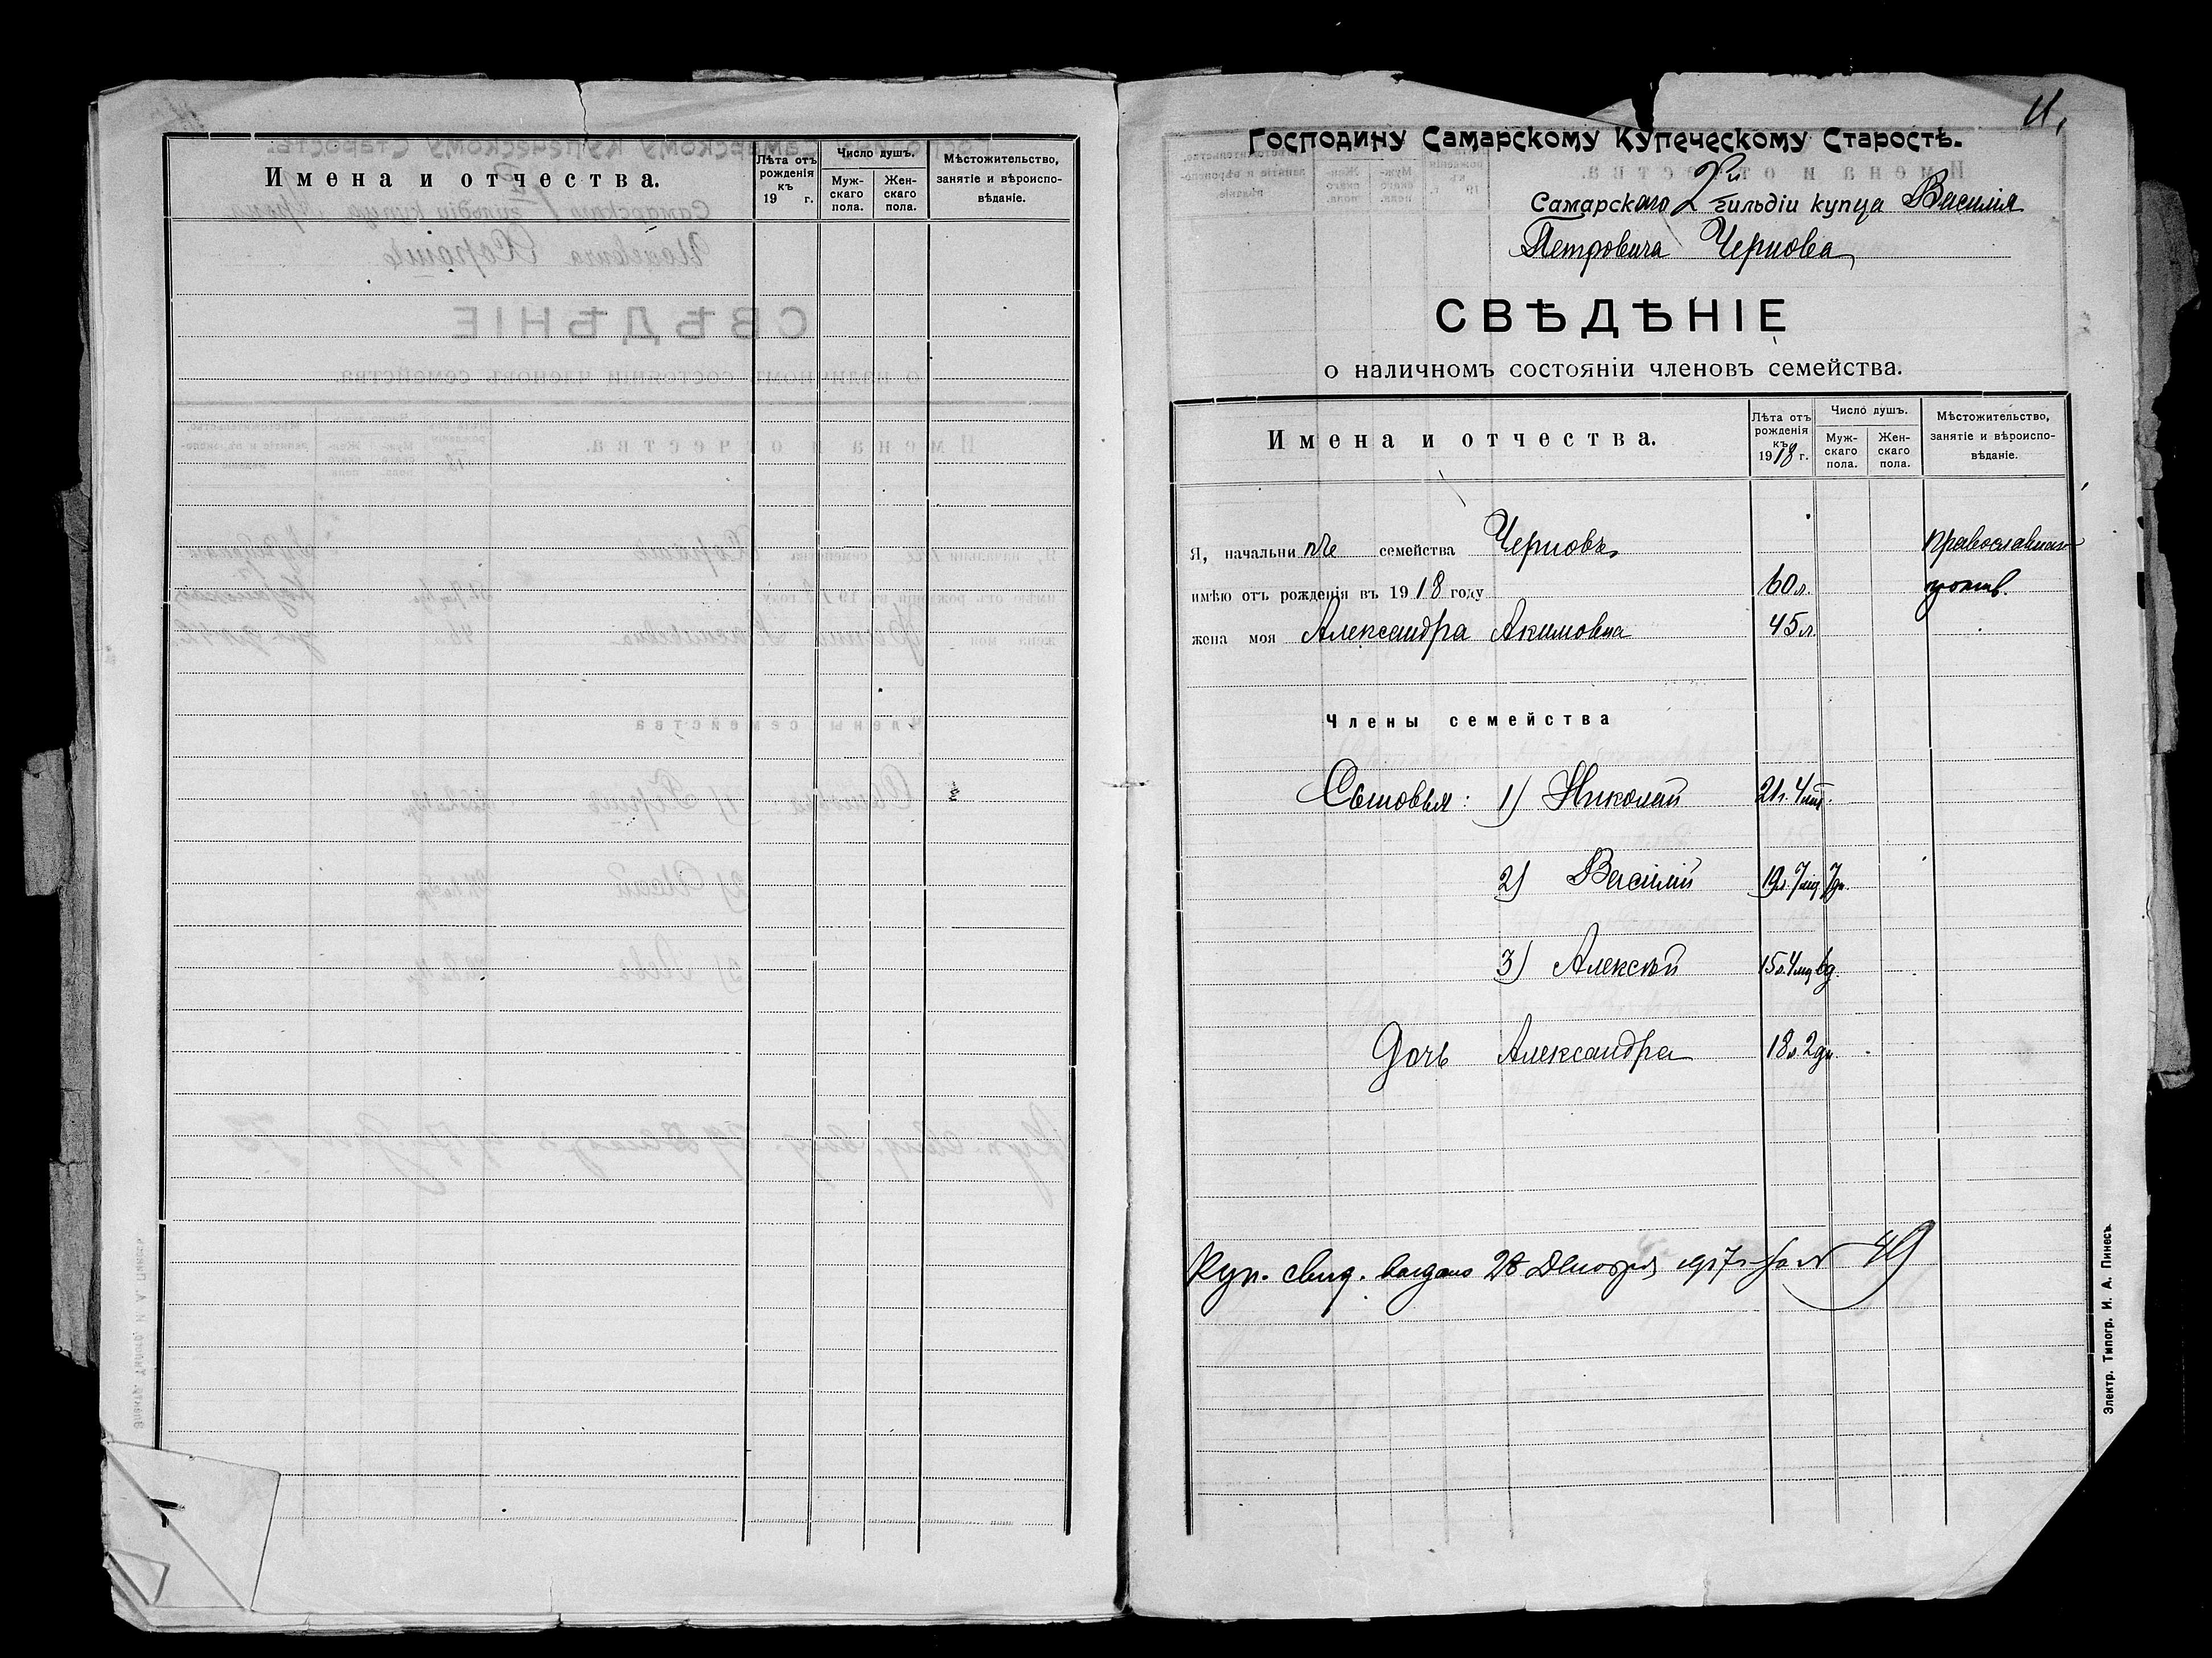 Имена и отчества.
Лѣта отъ рожденія къ 19 г.
Число душъ.
Муж-скаго пола.
Жен-скаго пола.
Мѣстожительство, занятіе и вѣроиспо-вѣданіе.
11,
Господину Самарскому Купеческому Старостѣ.
Самарскаго 2й гильдіи купца Василія
Петровича Чернова
СВѢДѢНІЕ
о наличномъ состояніи членовъ семейства.
Имена и отчества.
Лѣта отъ рожденія къ 1918 г.
Число душъ.
Муж-скаго пола.
Жен-скаго пола.
Мѣстожительство, занятіе и вѣроиспо-вѣданіе.
Я, начальни семейства Черновъ
имѣю отъ рожденія въ 1918 году 60 л.
жена моя Александра Акимовна 45 л.
Члены семейства
Сыновья: 1) Николай 21 г. 4 мѣс.
2) Василий 19 л. 7 мѣс. 7 дн.
3) Алексѣй 15 л. 4 мѣс. 6 д.
Дочь Александра 18 л. 2 дн.
Куп. свид. выдано 28 Декабря 1917 г. за № 49
Электр. Типогр. И. А. Пинесъ.